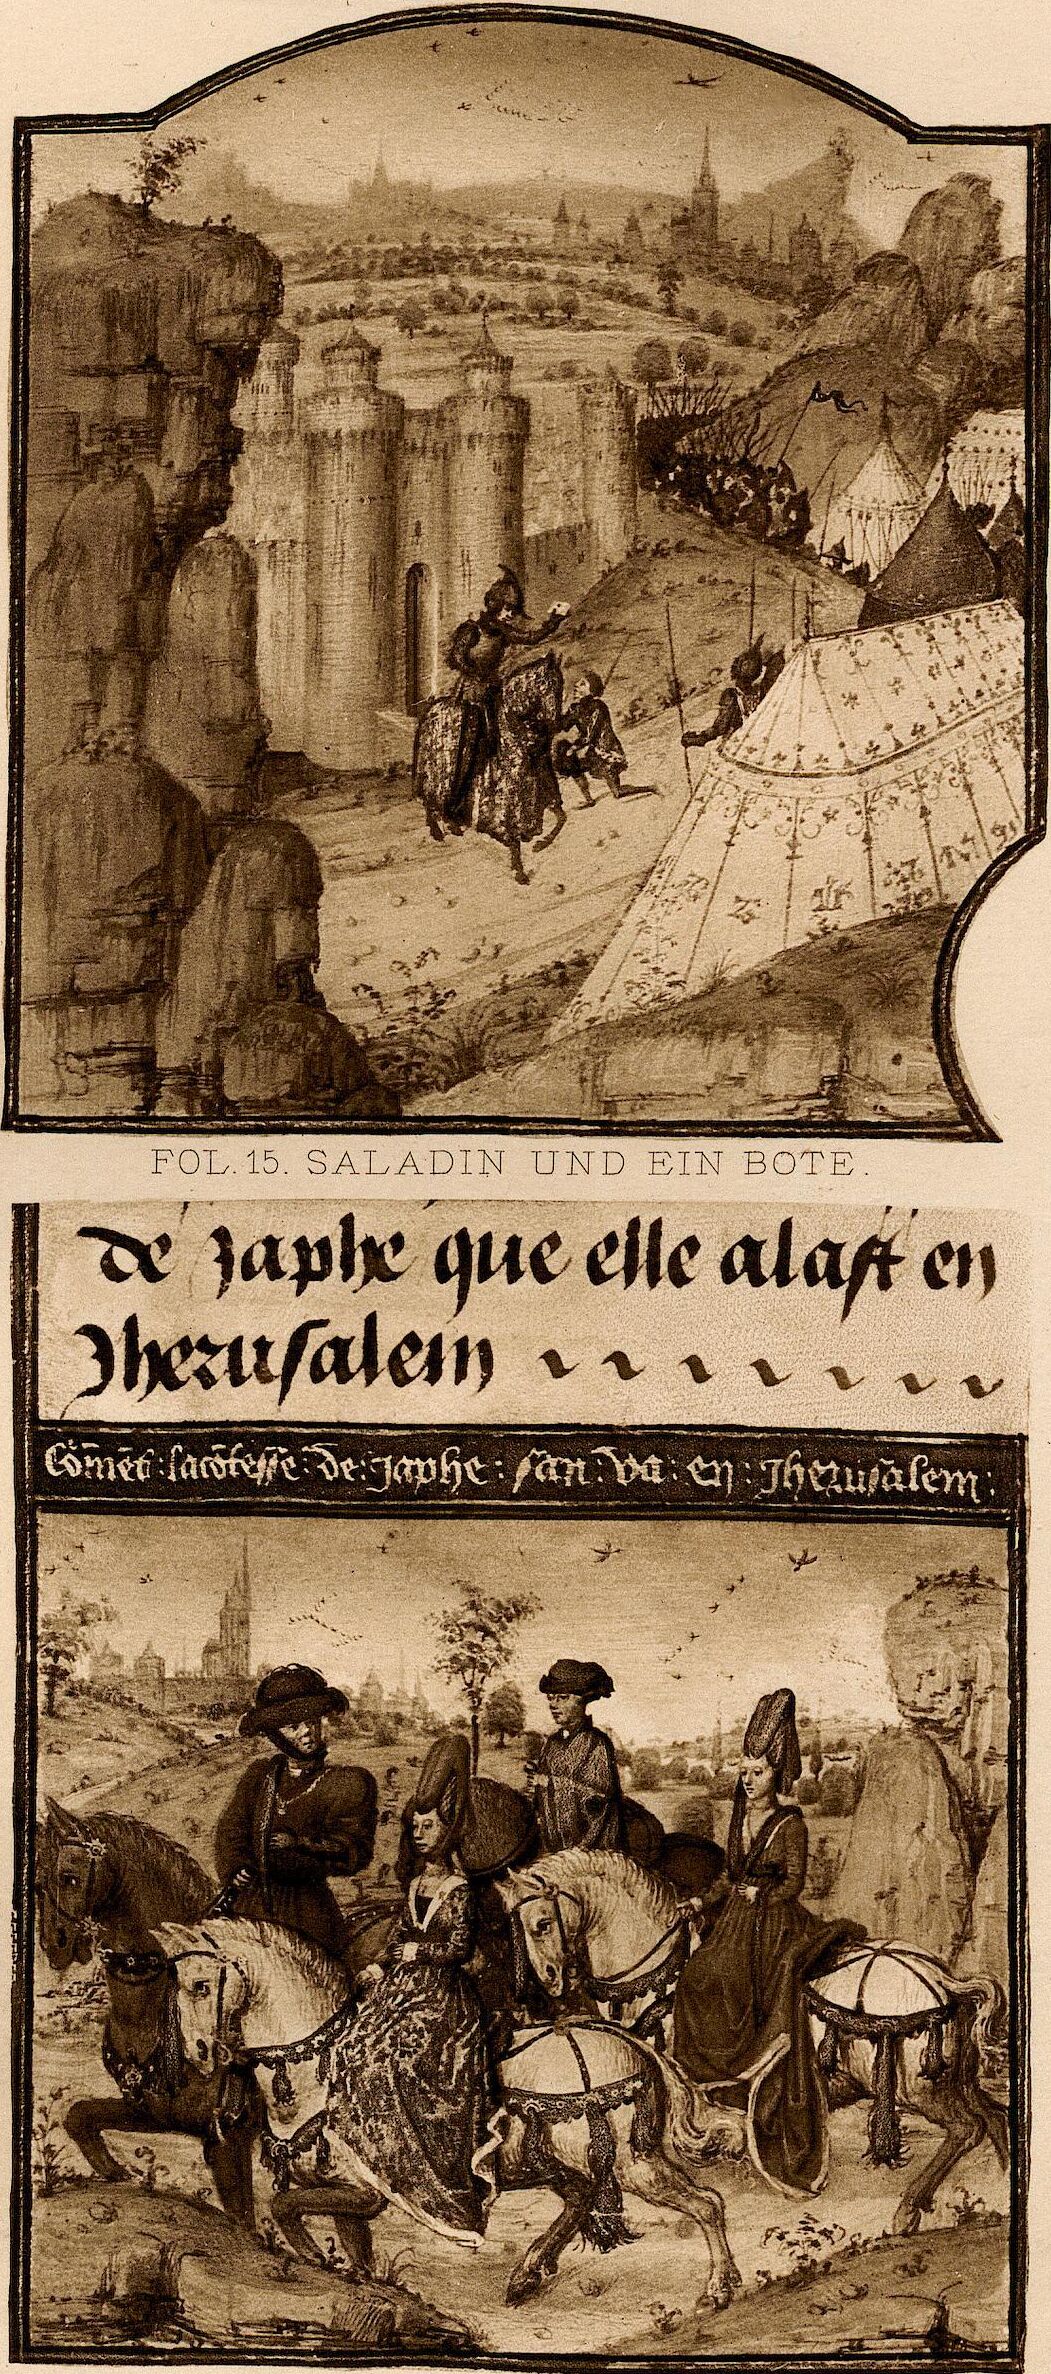 FOL. 15. SALADIN UND EIN BOTE.
de Japhe que elle alast en
Jherusalem
Cōmēt : lacōtesse : de : Japhe : san : va : en : Jherusalem :